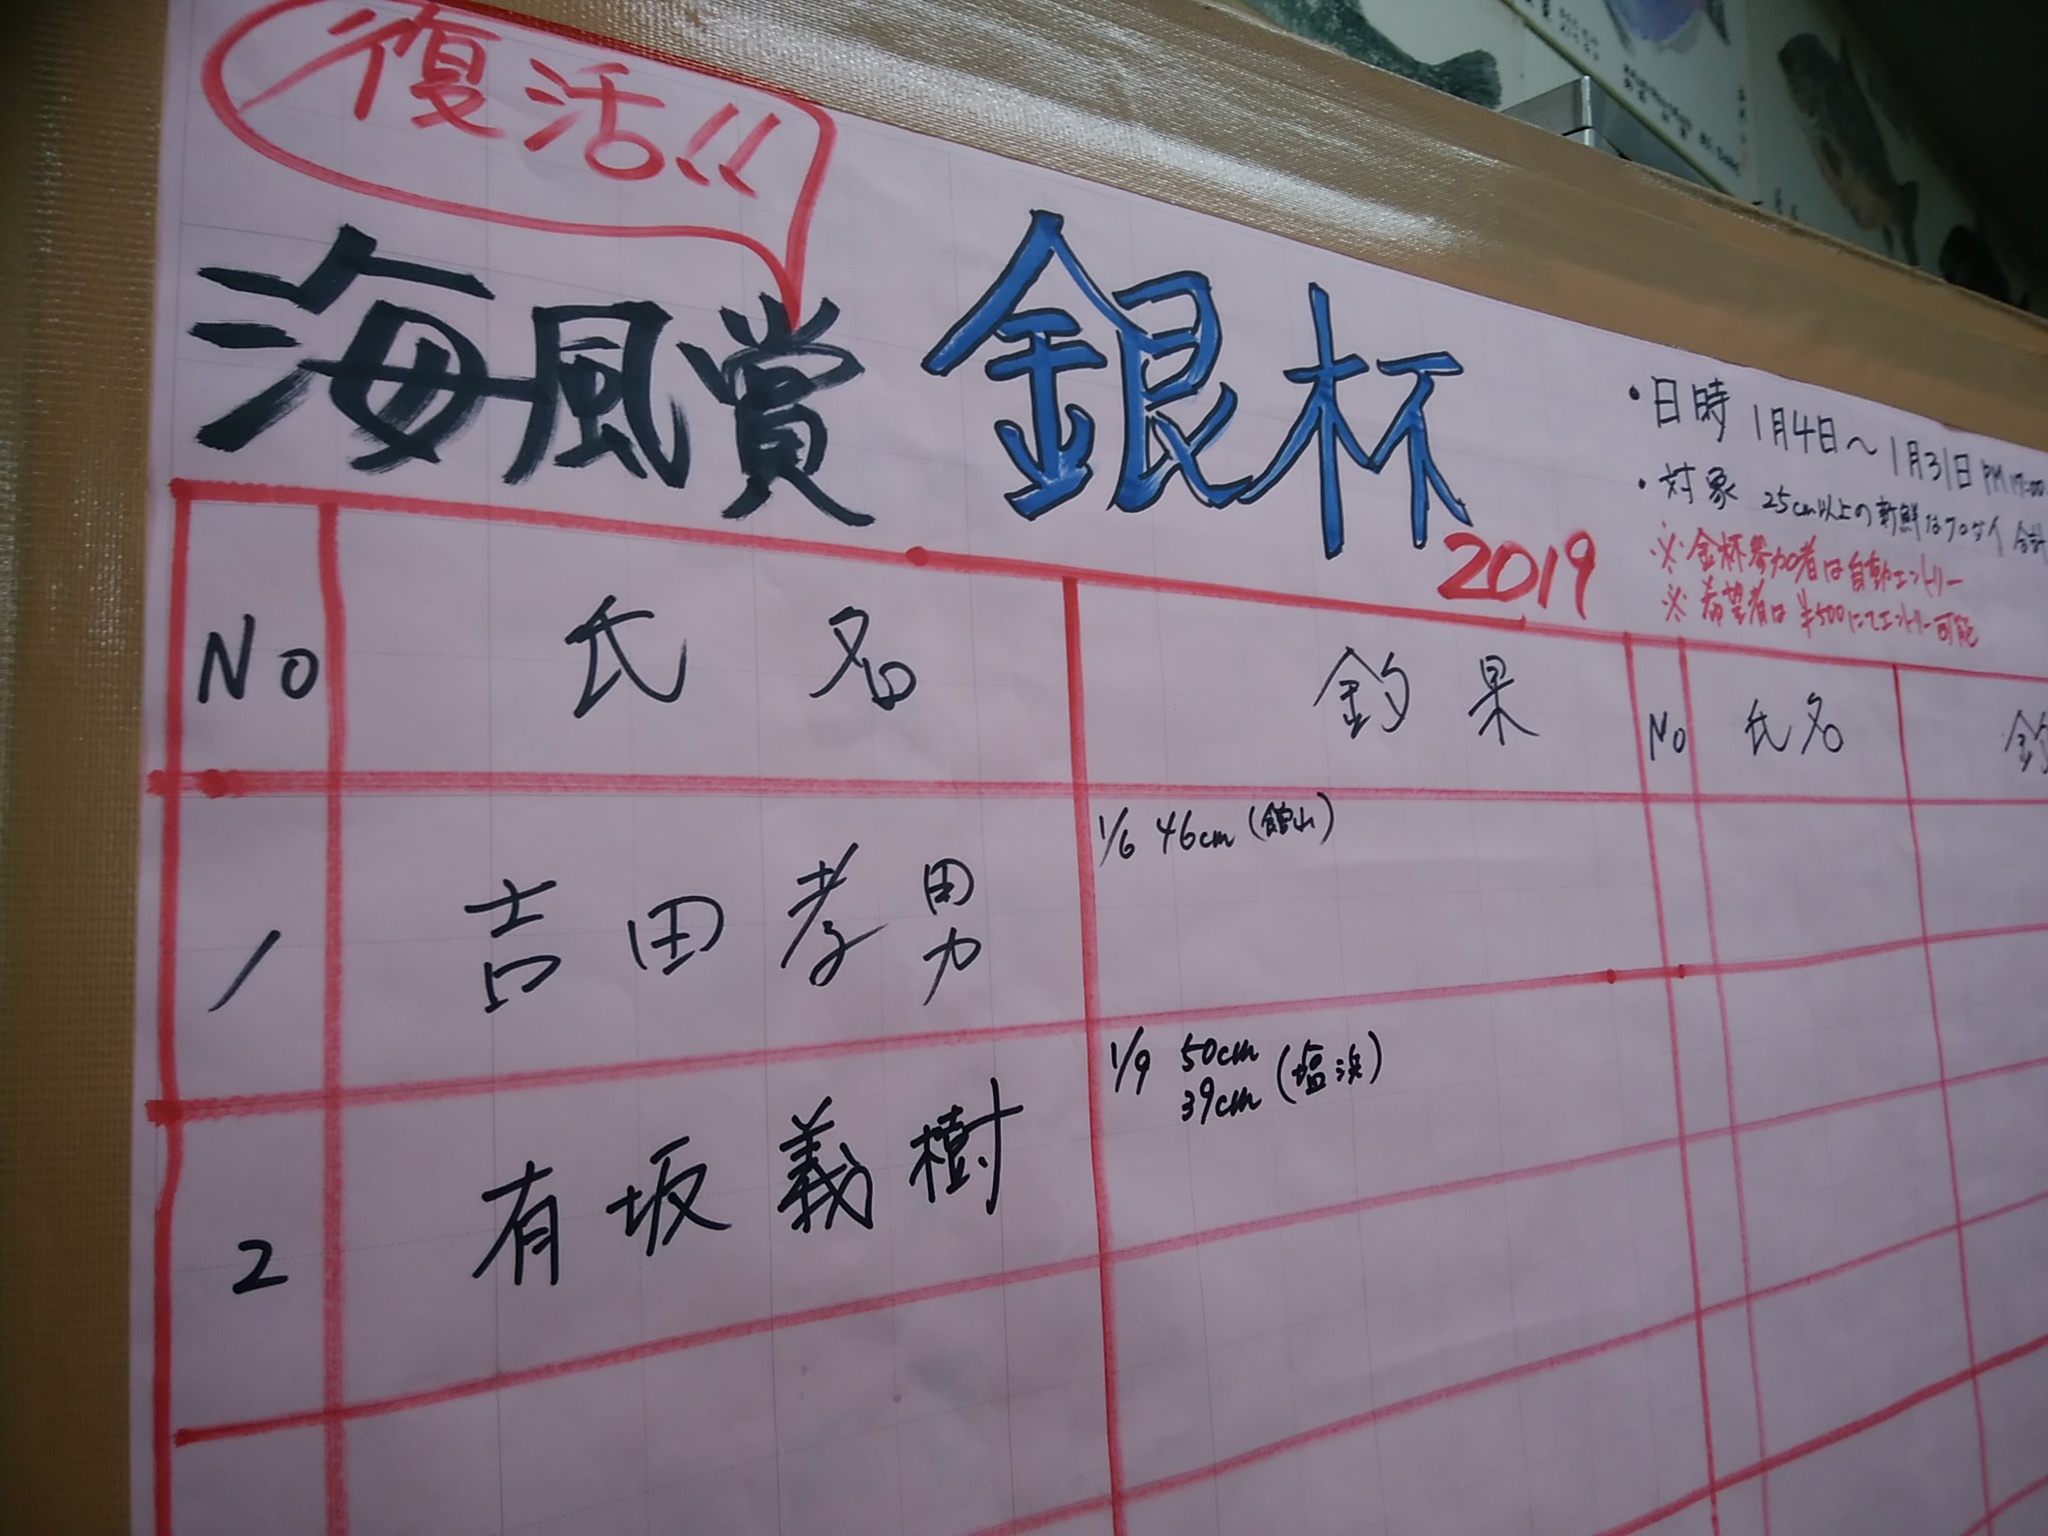 復活!!
海風賞 銀杯 2019
・日時 1月4日～1月31日 PM17:00
・対象 25cm以上の新鮮なクロダイ 合計
※金杯参加者は自動エントリー
※希望者は¥500にてエントリー可能
No 氏名 釣果 No 氏名 釣
1 吉田孝男 1/6 46cm (館山)
2 有坂義樹 1/9 50cm
39cm (塩浜)